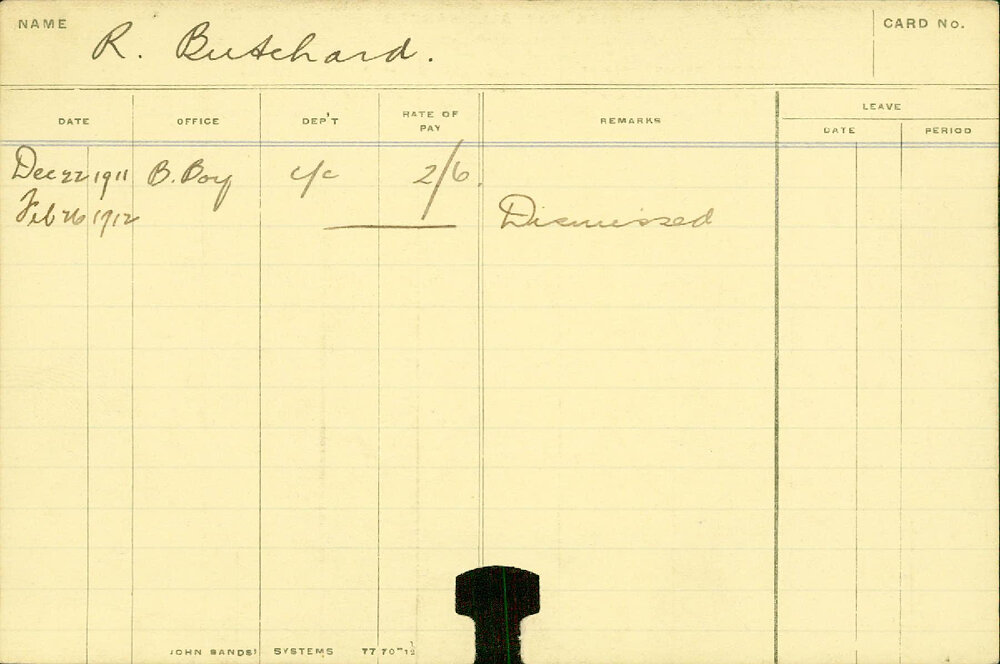 NAME R. Butchard. CARD No.
DATE OFFICE DEP'T RATE OF PAY REMARKS LEAVE
DATE PERIOD
Dec 22 1911 B. Boy c/c 2/6.
Feb 26 1912 Dismissed
JOHN SANDS' SYSTEMS